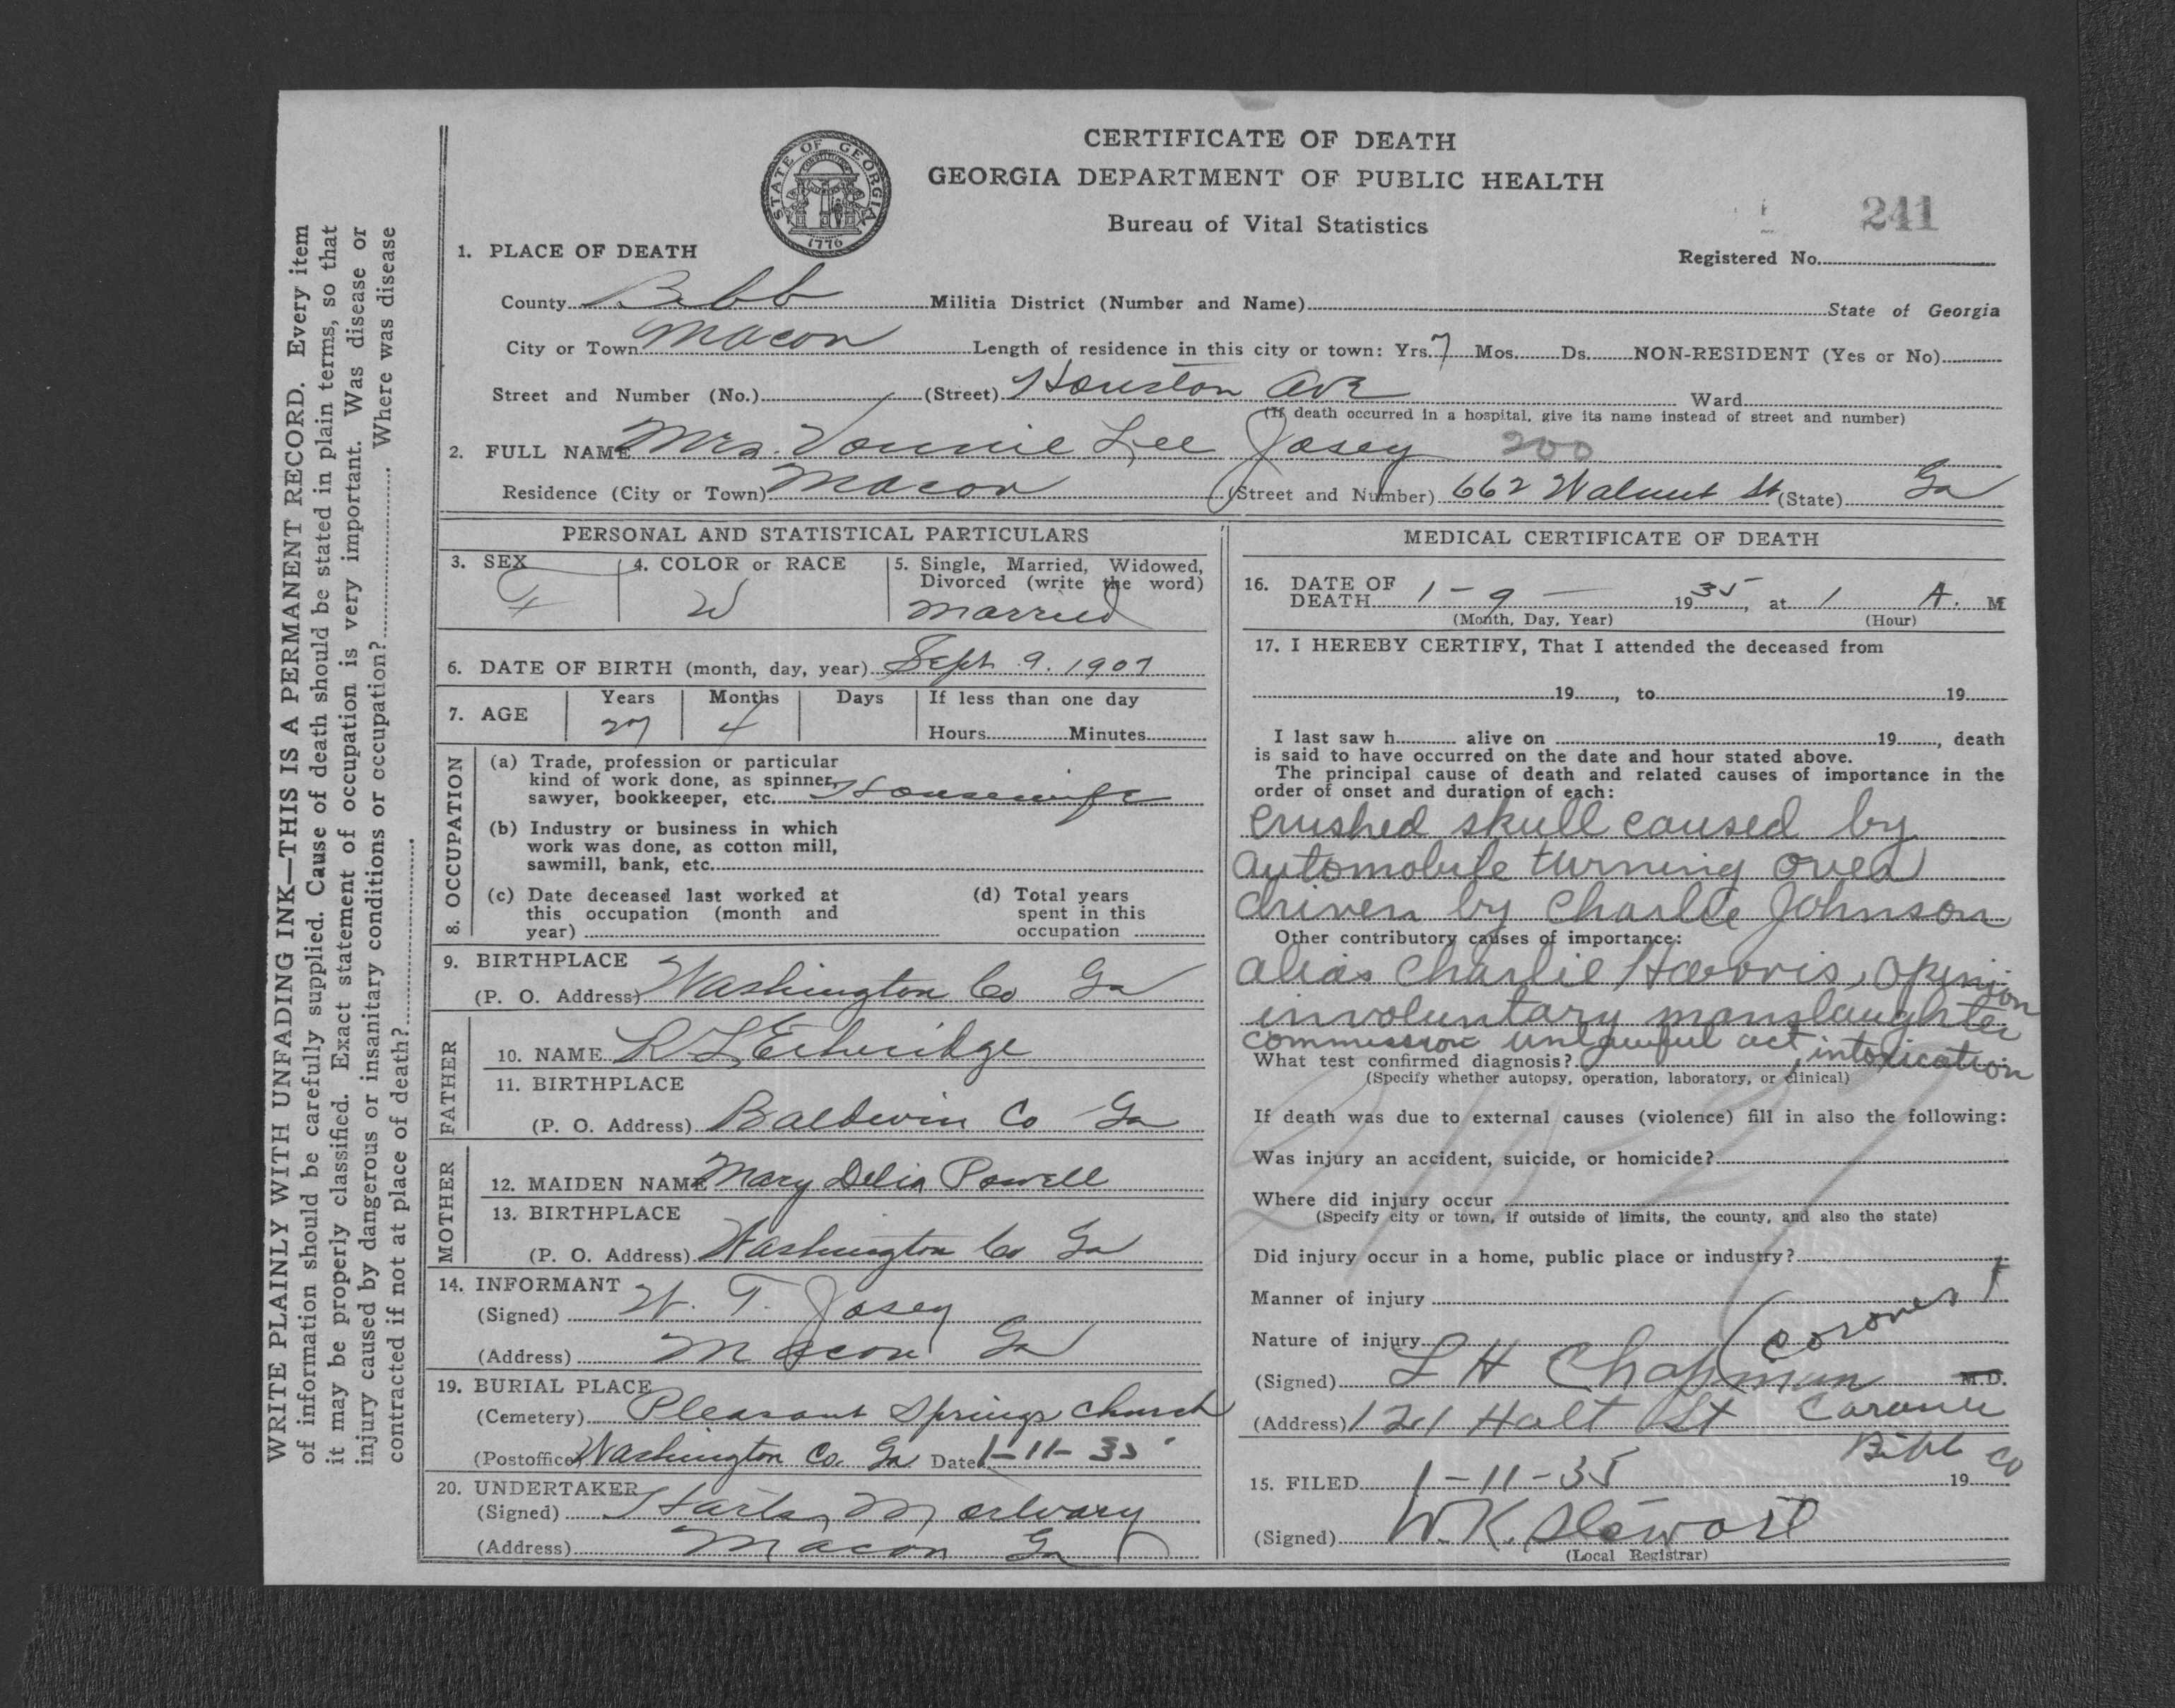 CERTIFICATE OF DEATH
GEORGIA DEPARTMENT OF PUBLIC HEALTH
Bureau of Vital Statistics
STATE OF GEORGIA
CONSTITUTION
1776
241
Registered No.
1. PLACE OF DEATH
County Bibb Militia District (Number and Name) State of Georgia
City or Town Macon Length of residence in this city or town: Yrs. 7 Mos. Ds. NON-RESIDENT (Yes or No)
Street and Number (No.) (Street) Houston Ave Ward
(If death occurred in a hospital, give its name instead of street and number)
2. FULL NAME Mrs. Vonnie Lee Josey 200
Residence (City or Town) Macon (Street and Number) 662 Walnut St (State) Ga
PERSONAL AND STATISTICAL PARTICULARS
3. SEX F 4. COLOR or RACE W 5. Single, Married, Widowed, Divorced (write the word) Married
6. DATE OF BIRTH (month, day, year) Sept. 9. 1907
7. AGE Years 27 Months 4 Days If less than one day Hours Minutes
8. OCCUPATION
(a) Trade, profession or particular
kind of work done, as spinner,
sawyer, bookkeeper, etc. Housewife
(b) Industry or business in which
work was done, as cotton mill,
sawmill, bank, etc.
(c) Date deceased last worked at
this occupation (month and
year)
(d) Total years
spent in this
occupation
9. BIRTHPLACE
(P. O. Address) Washington Co Ga
FATHER
10. NAME R L Etheridge
11. BIRTHPLACE
(P. O. Address) Baldwin Co Ga
MOTHER
12. MAIDEN NAME Mary Delia Powell
13. BIRTHPLACE
(P. O. Address) Washington Co Ga
14. INFORMANT
(Signed) W. T. Josey
(Address) Macon Ga
19. BURIAL PLACE
(Cemetery) Pleasant Springs Church
(Postoffice) Washington Co. Ga Date 1-11-35
20. UNDERTAKER
(Signed) Harts Mortuary
(Address) Macon Ga
MEDICAL CERTIFICATE OF DEATH
16. DATE OF
DEATH 1-9- 1935, at 1 A. M
(Month, Day, Year) (Hour)
17. I HEREBY CERTIFY, That I attended the deceased from
19 , to 19
I last saw h alive on 19 , death
is said to have occurred on the date and hour stated above.
The principal cause of death and related causes of importance in the
order of onset and duration of each:
crushed skull caused by
automobile turning over
driven by Charlie Johnson
Other contributory causes of importance:
alias Charlie Harris, opinion
involuntary manslaughter
commission unlawful act, intoxication
What test confirmed diagnosis?
(Specify whether autopsy, operation, laboratory, or clinical)
If death was due to external causes (violence) fill in also the following:
Was injury an accident, suicide, or homicide?
Where did injury occur
(Specify city or town, if outside of limits, the county, and also the state)
Did injury occur in a home, public place or industry?
Manner of injury
Nature of injury
(Coroner)
(Signed) L H Chapman M.D.
(Address) 121 Holt St Coroner
Bibb Co
15. FILED 1-11-35 19
(Signed) W. K. Stewart
(Local Registrar)
WRITE PLAINLY WITH UNFADING INK—THIS IS A PERMANENT RECORD. Every item
of information should be carefully supplied. Cause of death should be stated in plain terms, so that
it may be properly classified. Exact statement of occupation is very important. Was disease or
injury caused by dangerous or insanitary conditions or occupation? Where was disease
contracted if not at place of death?